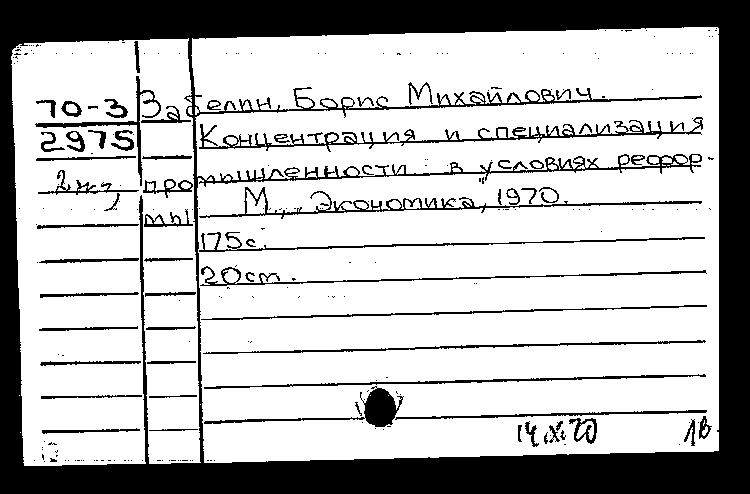 70-3 Забелин, Борис Михайлович.
2975 Концентрация и специализация
2 экз, промышленности в условиях рефор-
мы. М., Экономика, 1970.
175с.
20cm.
14.XI.70 1в